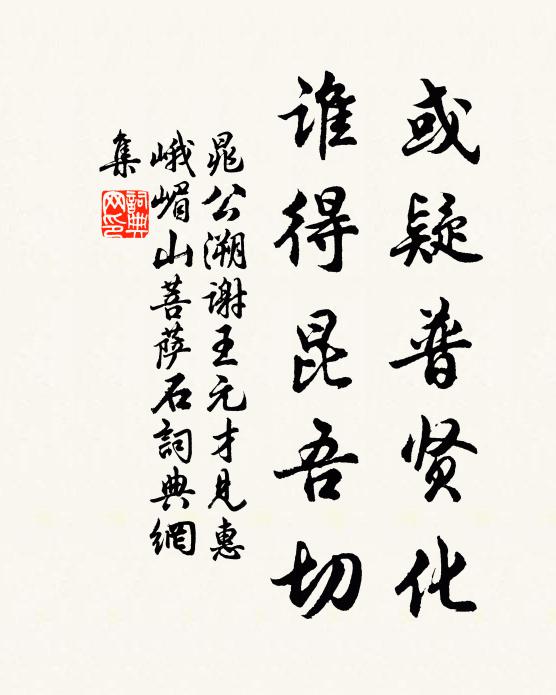 或疑普贤化
谁得昆吾切
晁公溯谢王元才见惠
峨嵋山菩萨石詞典網
集
詞典
网印